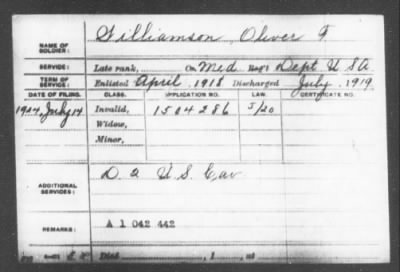 NAME OF SOLDIER: Gilliamson, Oliver F.
SERVICE: Late rank, On Med Reg't Dept. U S A
TERM OF SERVICE: Enlisted April, 1918 Discharged July, 1919.
DATE OF FILING. CLASS. APPLICATION NO. LAW. CERTIFICATE NO.
1924, July 14 Invalid, 1504286 5/20
Widow,
Minor,
ADDITIONAL SERVICES: D 2 U.S. Cav
REMARKS: A 1 042 442
Died , 1 , at